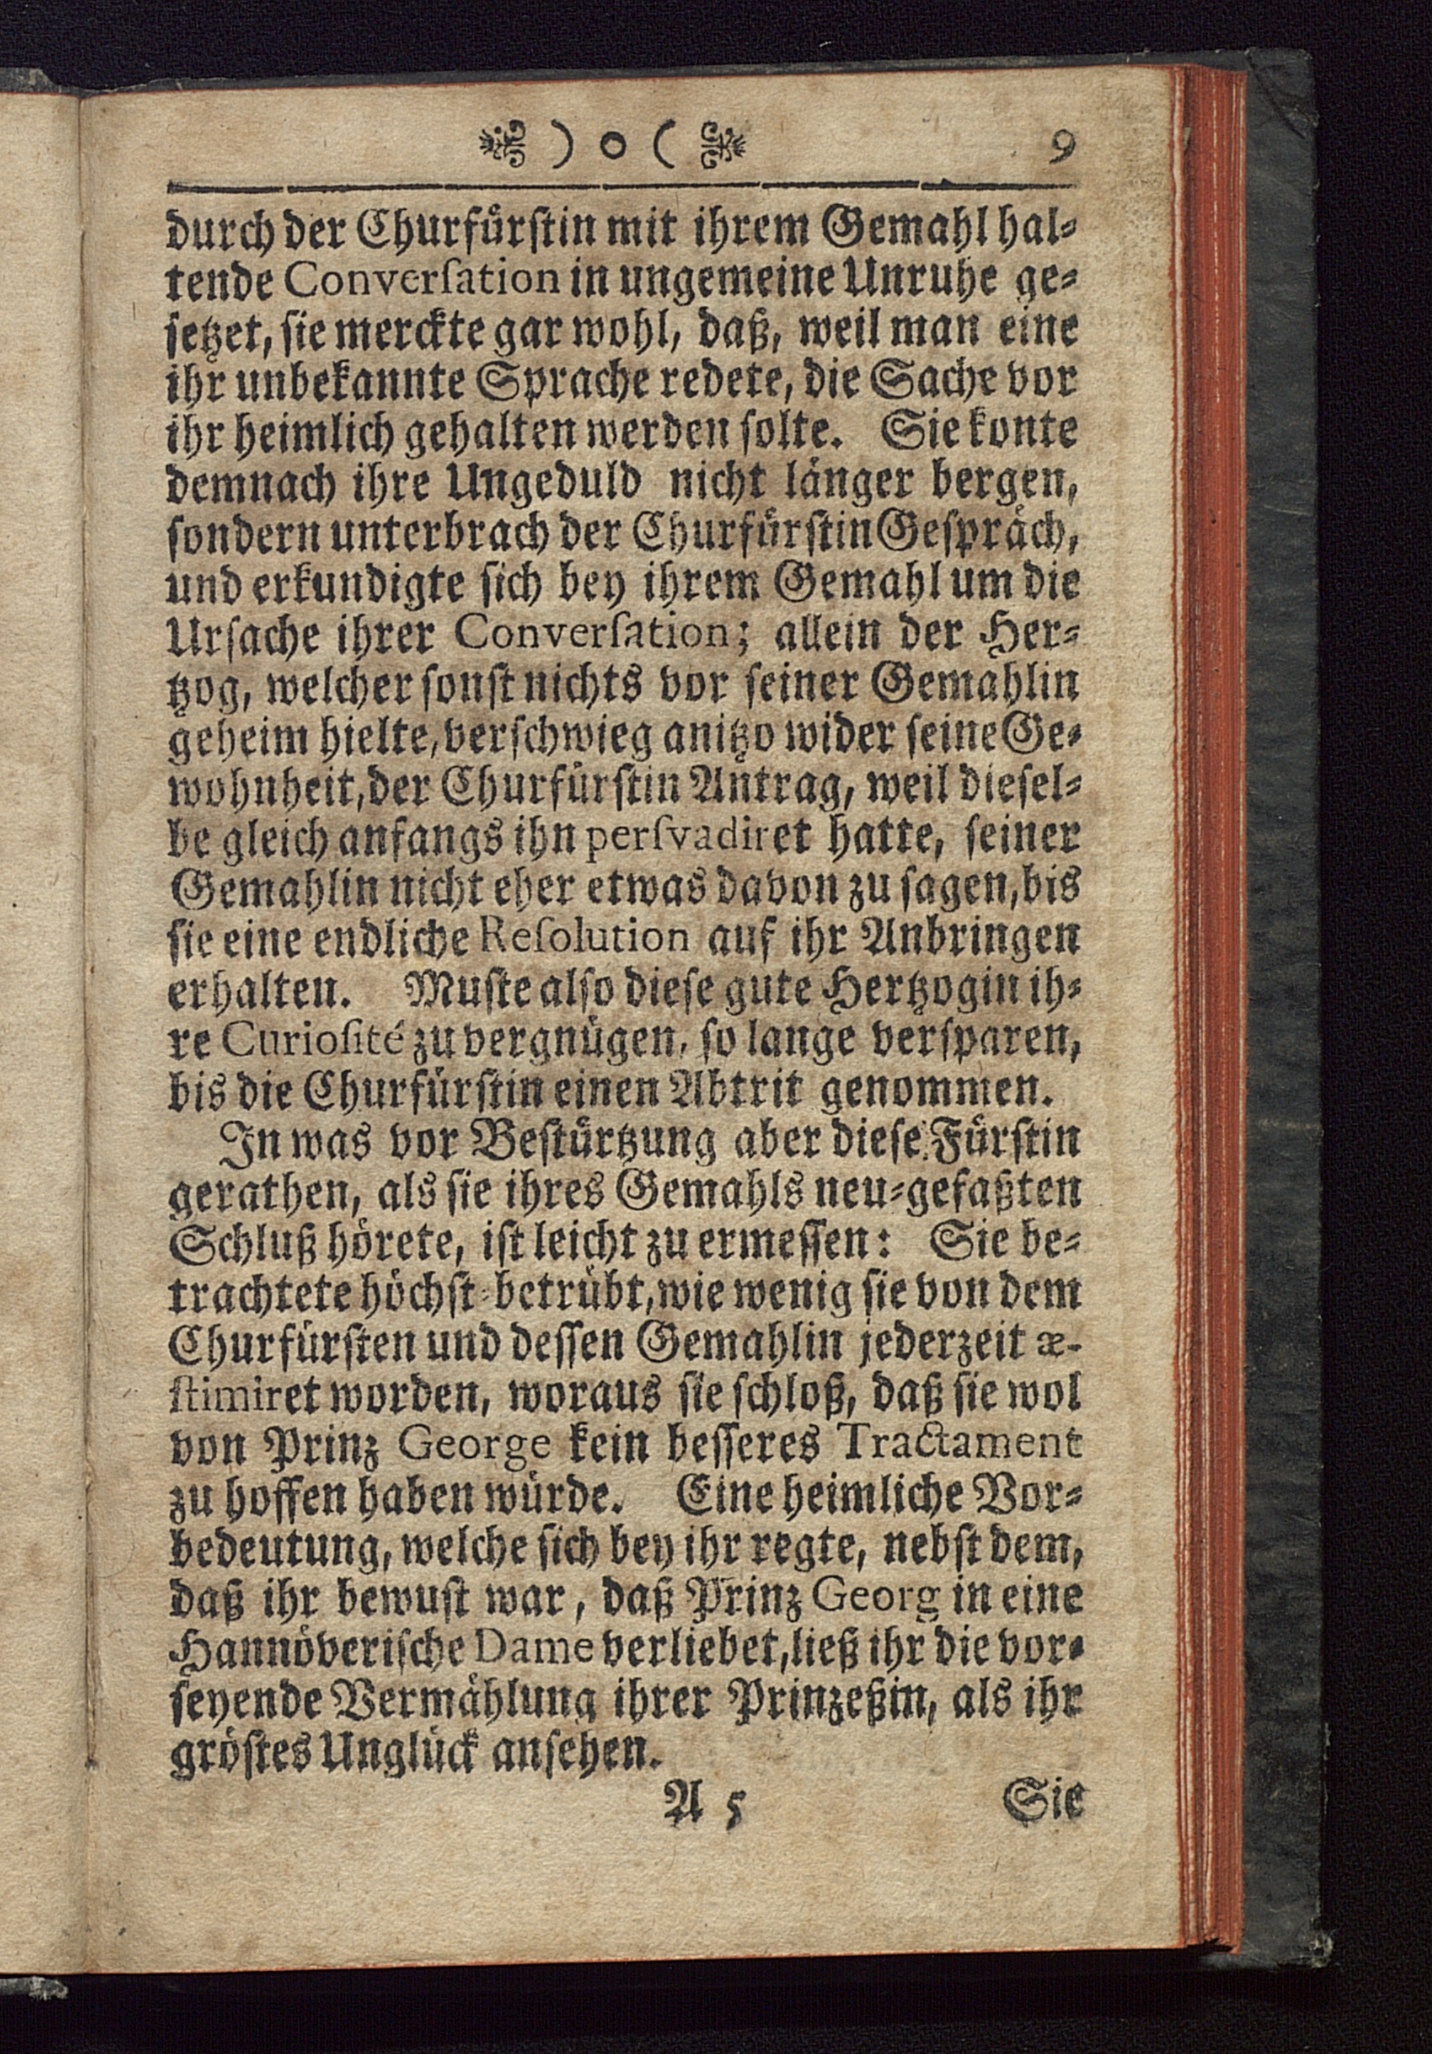 ) o ( 9
durch der Churfürstin mit ihrem Gemahl hal-
tende Conversation in ungemeine Unruhe ge-
setzet, sie merckte gar wohl, daß, weil man eine
ihr unbekannte Sprache redete, die Sache vor
ihr heimlich gehalten werden solte. Sie konte
demnach ihre Ungeduld nicht länger bergen,
sondern unterbrach der Churfürstin Gespräch,
und erkundigte sich bey ihrem Gemahl um die
Ursache ihrer Conversation; allein der Her-
tzog, welcher sonst nichts vor seiner Gemahlin
geheim hielte, verschwieg anitzo wider seine Ge-
wohnheit, der Churfürstin Antrag, weil diesel-
be gleich anfangs ihn persvadiret hatte, seiner
Gemahlin nicht eher etwas davon zu sagen, bis
sie eine endliche Resolution auf ihr Anbringen
erhalten. Muste also diese gute Hertzogin ih-
re Curiosité zu vergnügen, so lange versparen,
bis die Churfürstin einen Abtrit genommen.
In was vor Bestürtzung aber diese Fürstin
gerathen, als sie ihres Gemahls neu-gefaßten
Schluß hörete, ist leicht zu ermessen: Sie be-
trachtete höchst-betrübt, wie wenig sie von dem
Churfürsten und dessen Gemahlin jederzeit æ-
stimiret worden, woraus sie schloß, daß sie wol
von Prinz George kein besseres Tractament
zu hoffen haben würde. Eine heimliche Vor-
bedeutung, welche sich bey ihr regte, nebst dem,
daß ihr bewust war, daß Prinz Georg in eine
Hannöverische Dame verliebet, ließ ihr die vor-
seyende Vermählung ihrer Prinzeßin, als ihr
gröstes Unglück ansehen.
A 5 Sie